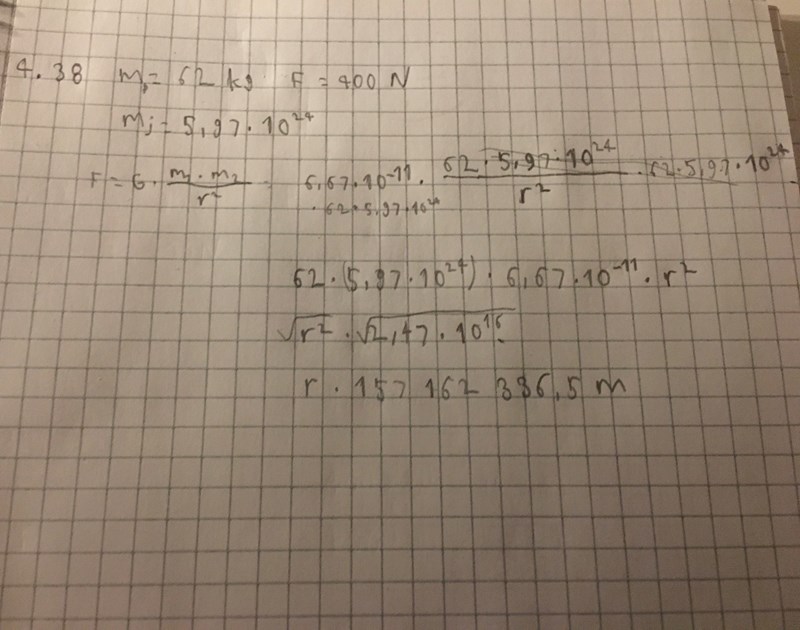 4.38 m₁ = 62 kg F = 400 N
mj = 5,97 · 10²⁴
F = G · m₁ · m₂ / r² 6,67 · 10⁻¹¹ · 62 · 5,97 · 10²⁴ / r² · 62 · 5,97 · 10²⁴
· 62 · 5,97 · 10²⁴
62 · (5,97 · 10²⁴) · 6,67 · 10⁻¹¹ · r²
√r² · √2,47 · 10¹⁶
r · 157 162 336,5 m